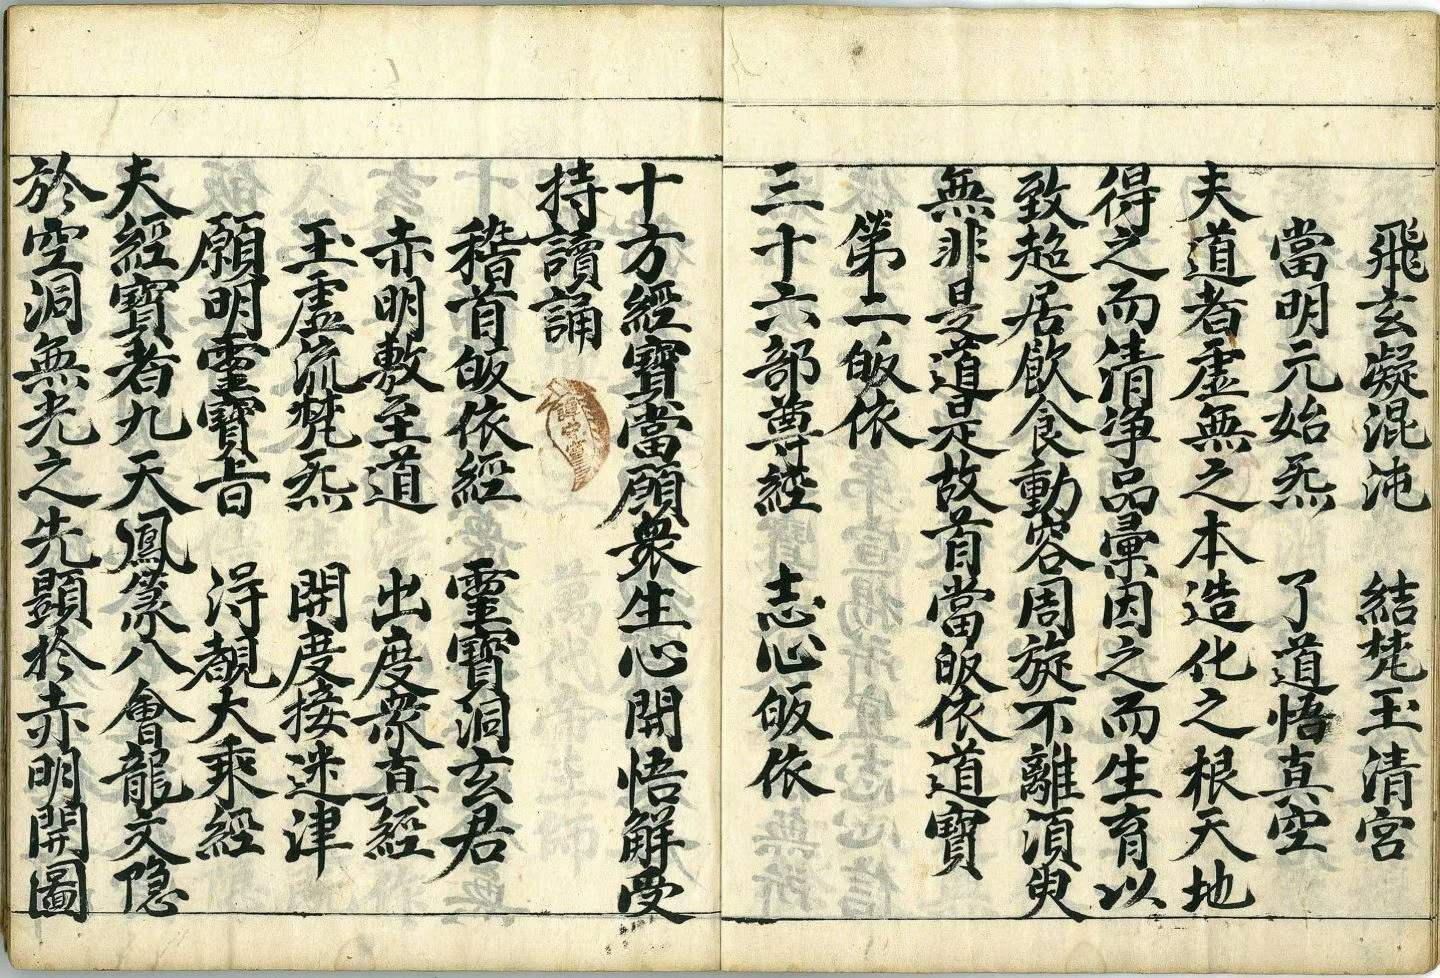 飛玄凝混沌　結梵玉清宮
當明元始炁　了道悟真空
夫道者虛無之本造化之根天地
得之而清净品彙因之而生育以
致超居飲食動容周旋不離湏臾
無非是道是故首當皈依道寶
第二皈依
三十六部尊經　志心皈依
十方經寶當願衆生心開悟解受
持讀誦
稽首皈依經　靈寶洞玄君
赤明敷至道　出度衆真經
玉虛流梵炁　開度接迷津
願明靈寶旨　得覩大乘經
夫經寶者九天鳳篆八會龍文隐
於空洞無光之先顯於赤明開圖